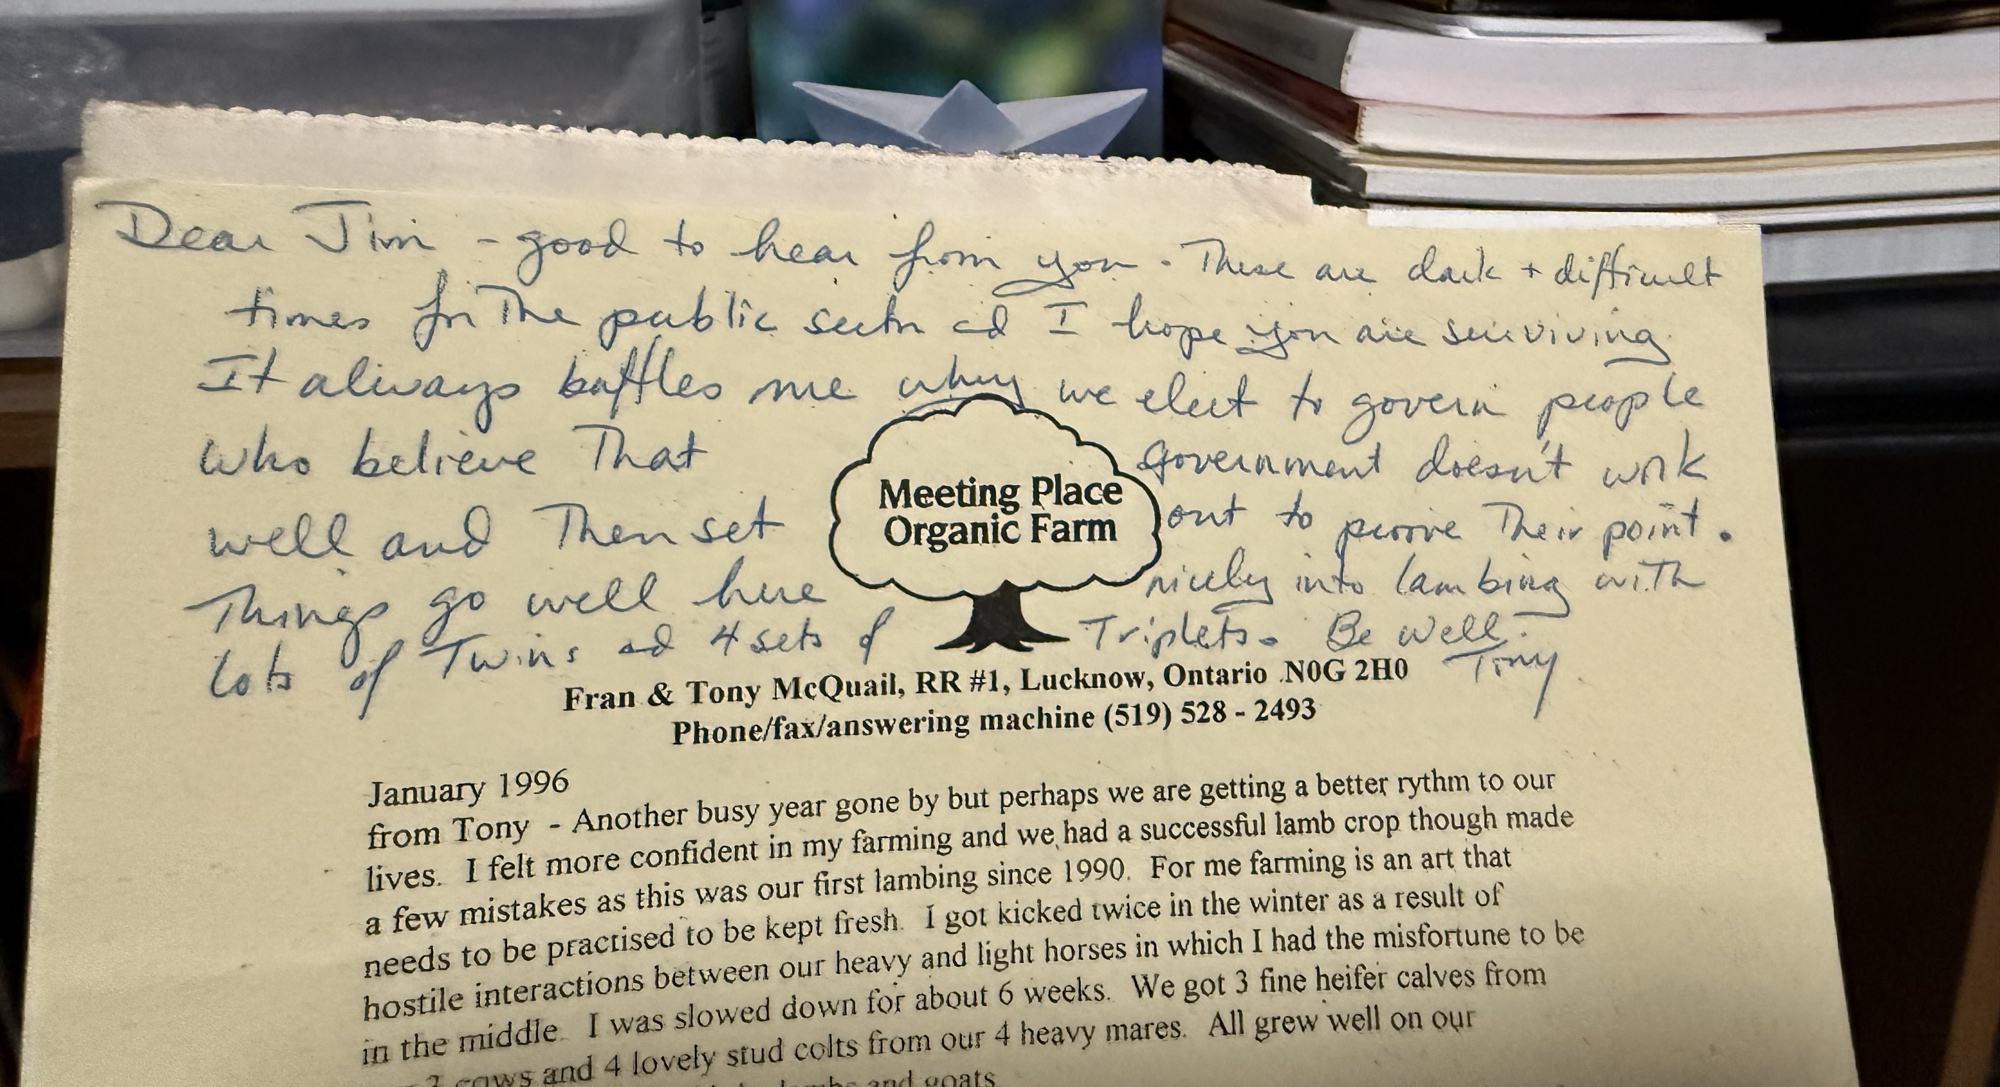 Dear Jim - good to hear from you. These are dark + difficult
times for the public sector ad I hope you are surviving.
It always baffles me why we elect to govern people
who believe that government doesn't work
well and then set out to prove their point.
Things go well here nicely into lambing with
lots of Twins ad 4 sets of Triplets. Be well.
Tony
Meeting Place
Organic Farm
Fran & Tony McQuail, RR #1, Lucknow, Ontario N0G 2H0
Phone/fax/answering machine (519) 528 - 2493
January 1996
from Tony - Another busy year gone by but perhaps we are getting a better rythm to our
lives. I felt more confident in my farming and we had a successful lamb crop though made
a few mistakes as this was our first lambing since 1990. For me farming is an art that
needs to be practised to be kept fresh. I got kicked twice in the winter as a result of
hostile interactions between our heavy and light horses in which I had the misfortune to be
in the middle. I was slowed down for about 6 weeks. We got 3 fine heifer calves from
3 cows and 4 lovely stud colts from our 4 heavy mares. All grew well on our
and goats